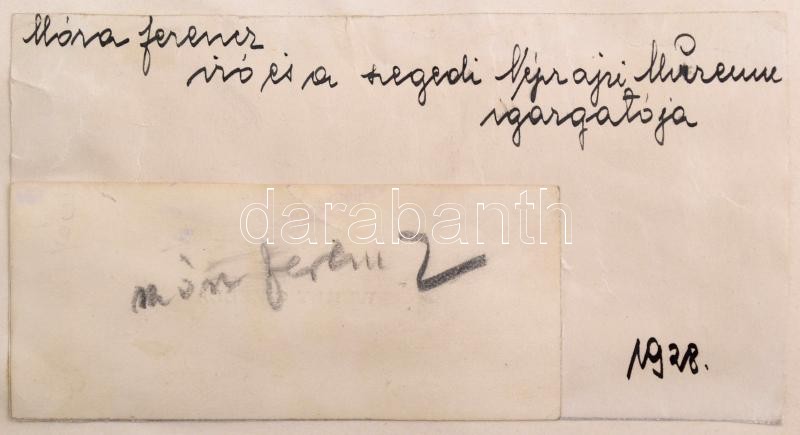 Móra ferencz
író és a szegedi Néprajzi Múzeum
igazgatója
darabanth
móra ferenc
1928.